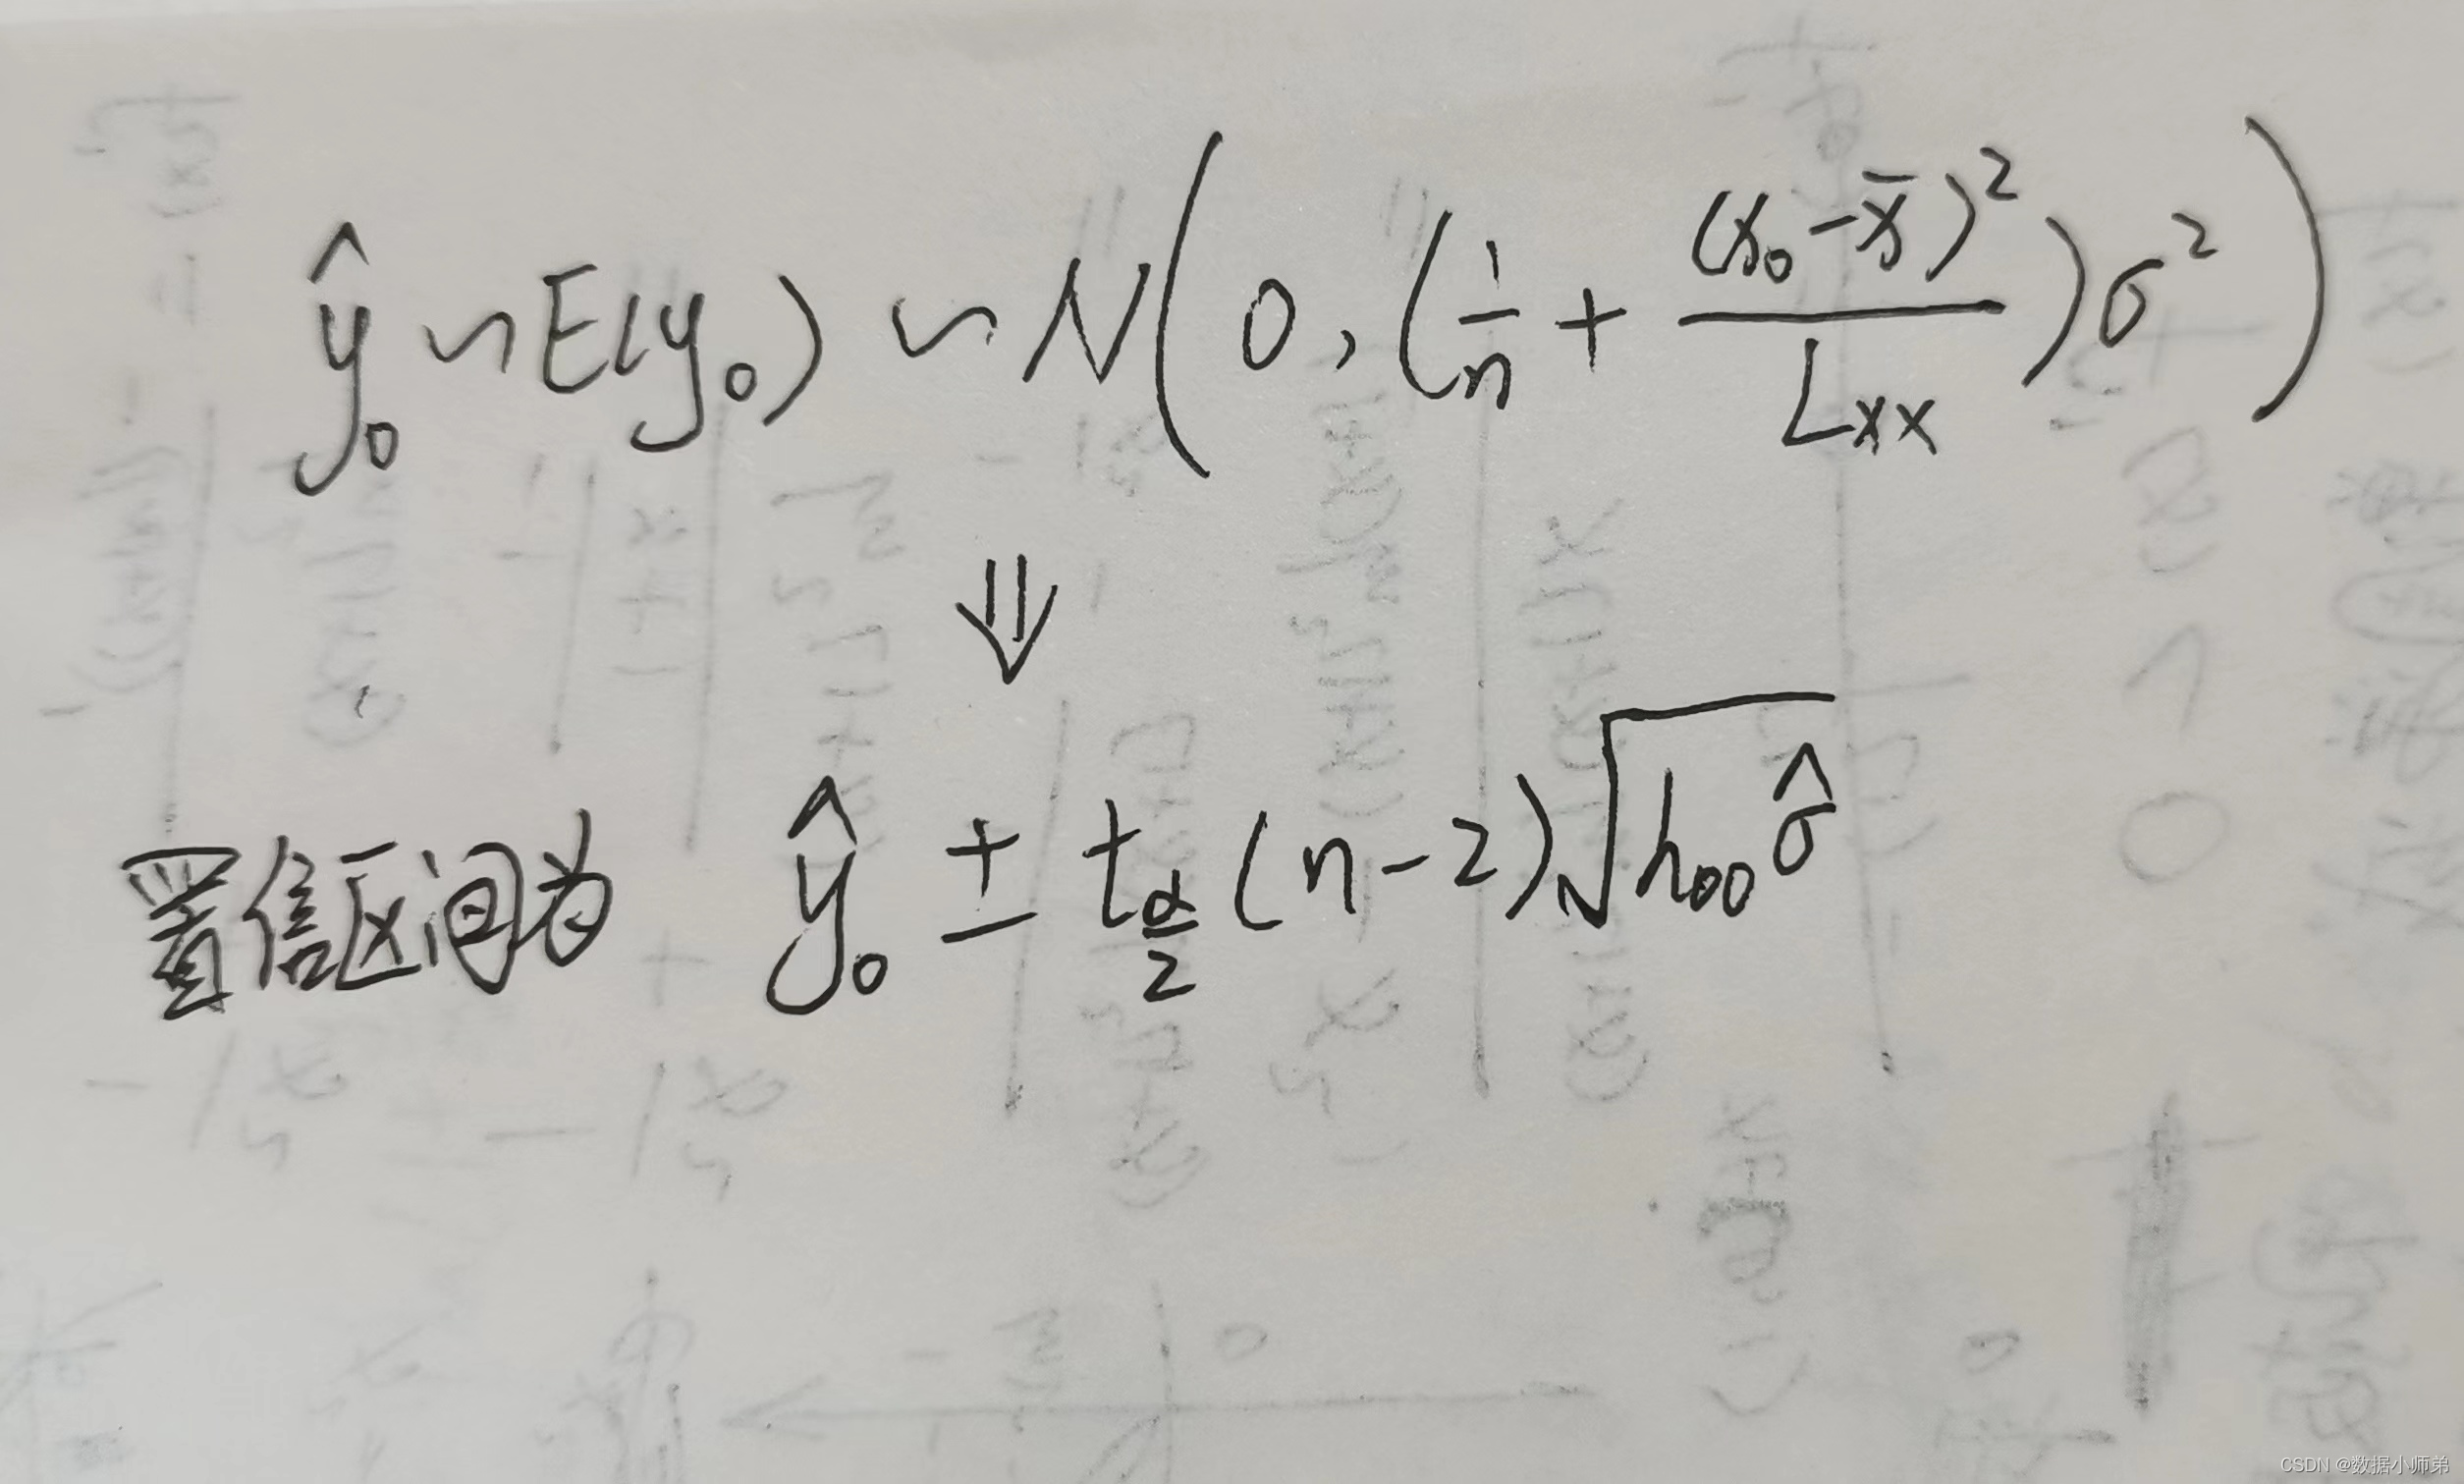 ŷ₀ ~ E(y₀) ~ N(0, (1/n + (x₀ - x̄)²/Lxx)σ²)
⇓
置信区间为 ŷ₀ ± t_{α/2}(n-2)√(h₀₀ σ̂)
CSDN @数据小师弟